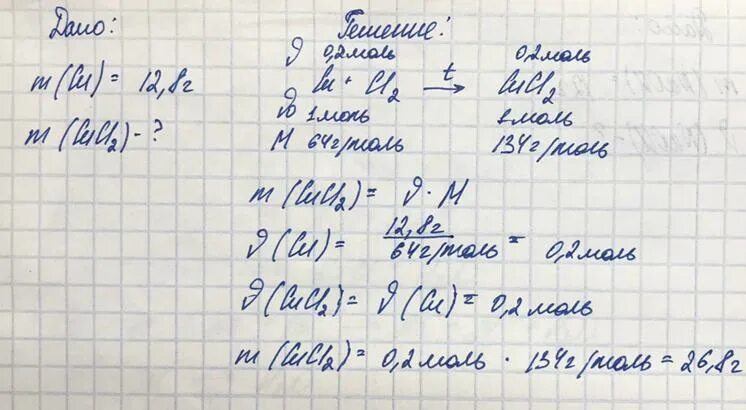 Дано:
m (Cu) = 12,8г
m (CuCl₂) - ?
Решение:
ν 0,2моль 0,2моль
Cu + Cl₂ t→ CuCl₂
ν 1моль 1моль
M 64г/моль 134г/моль
m (CuCl₂) = ν · M
ν (Cu) = 12,8г / 64г/моль = 0,2моль
ν (CuCl₂) = ν (Cu) = 0,2моль
m (CuCl₂) = 0,2моль · 134г/моль = 26,8г